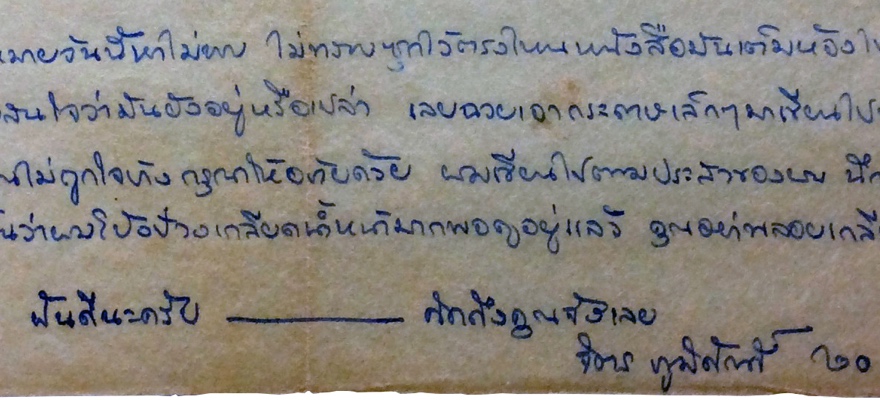 หมายวันนี้หาไม่พบ ไม่ทราบซุกไว้ตรงไหน หนังสือมันเต็มห้องไป
สนใจว่ามันยังอยู่หรือเปล่า เลยฉวยเอากระดาษเล็กๆ มาเขียนไป
ไม่ถูกใจก็กรุณาให้อภัยด้วย ผมเขียนไปตามประสาของผม นึก
ว่าผมไอ้บ๊วงเกลียดน้ำหน้ามากพอดูอยู่แล้ว คุณอย่าพลอยเกลีย
ฝันดีนะครับ ———— คิดถึงคุณจังเลย
จิตร ภูมิศักดิ์ ๒๐